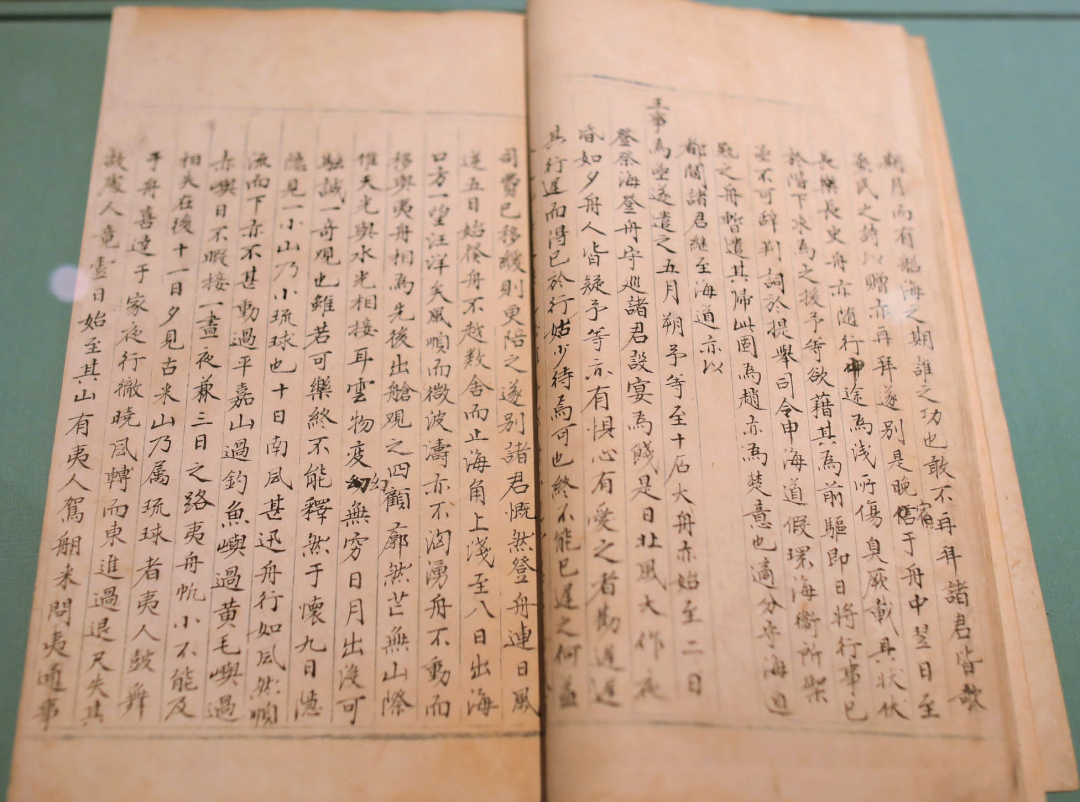 期月而有艤海之期誰之功也敢不再拜諸君皆歌
烝民之詩以贈亦再拜遂別是晚宿于舟中翌日至
長樂長史舟亦随行中途為浅所傷臭厥載具状伏
於階下求為之援予等欲藉其為前驅即日將行事已
亟不可辞判詞於提舉司令申海道假環海衛所架
之舟暫遣其歸此圍為趙亦為楚意也適分守海道
都閫諸君繼至海道亦以
王事為亟遂遣之五月朔予等至石大舟亦始至二日
祭海登舟守巡諸君設宴為餞是日北風大作夜
昏如夕舟人皆疑予等亦有惧心有愛之者勸遅遅
其行遅而得已於行姑少待焉可也終不能已遅之何益
司費已移緩則更陪之遂別諸君慨然登舟連日風
逆五日始發舟不越数舍而止海角上淺至八日出海
口方一望汪洋矣風順而微波濤亦不洶湧舟不動而
移與夷舟相為先後出艙觀之四顧廓然茫無山際
惟天光與水光相接耳雲物変幻無穷日月出没可
駭誠一奇观也雖若可樂終不能釋然于懷九日隱
隱見一小山乃小琉球也十日南風甚迅舟行如风然順
流而下亦不甚動過平嘉山過釣魚嶼過黄毛嶼過
赤嶼目不暇接一晝夜兼三日之路夷舟帆小不能及
相失在後十一日夕見古米山乃属琉球者夷人鼓舞
于舟喜達于家夜行徹曉风轉而東進過退尺失其
故处人竟壹日始至其山有夷人駕舟来問夷通事